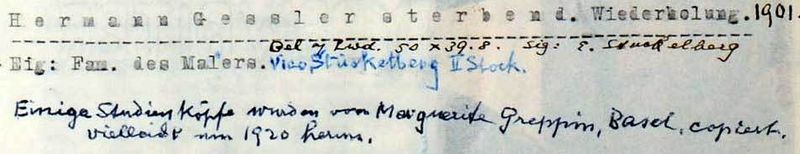 Hermann Gessler sterbend. Wiederholung. 1901.
Oel / Lwd. 50 x 39.8. Sig: E. Stuckelberg
Eig: Fam. des Malers. Vico Stückelberg II Stock.
Einige Studienköpfe wurden von Marguerite Greppin, Basel, copiert.
vielleicht um 1920 herum.